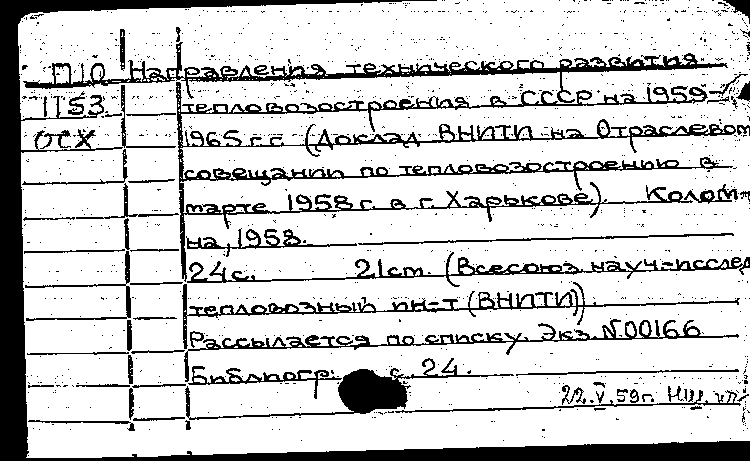 П10 Направления технического развития
1153 тепловозостроения в СССР на 1959-
ОСХ 1965 г.г. (Доклад ВНИТИ на Отраслевом
совещании по тепловозостроению в
марте 1958 г. в г. Харькове). Колом-
на, 1958.
24 с. 21 cm. (Всесоюз. науч-исслед
тепловозный ин-т (ВНИТИ)).
Рассылается по списку. Экз. N00166
Библиогр: с. 24.
22.V.59г.